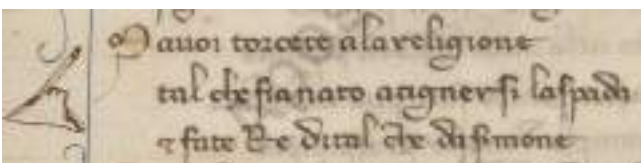 Mavoi torcete ala religione
tal che sia nato acigner si la spada
⁊ fate Re di tal che da sermone